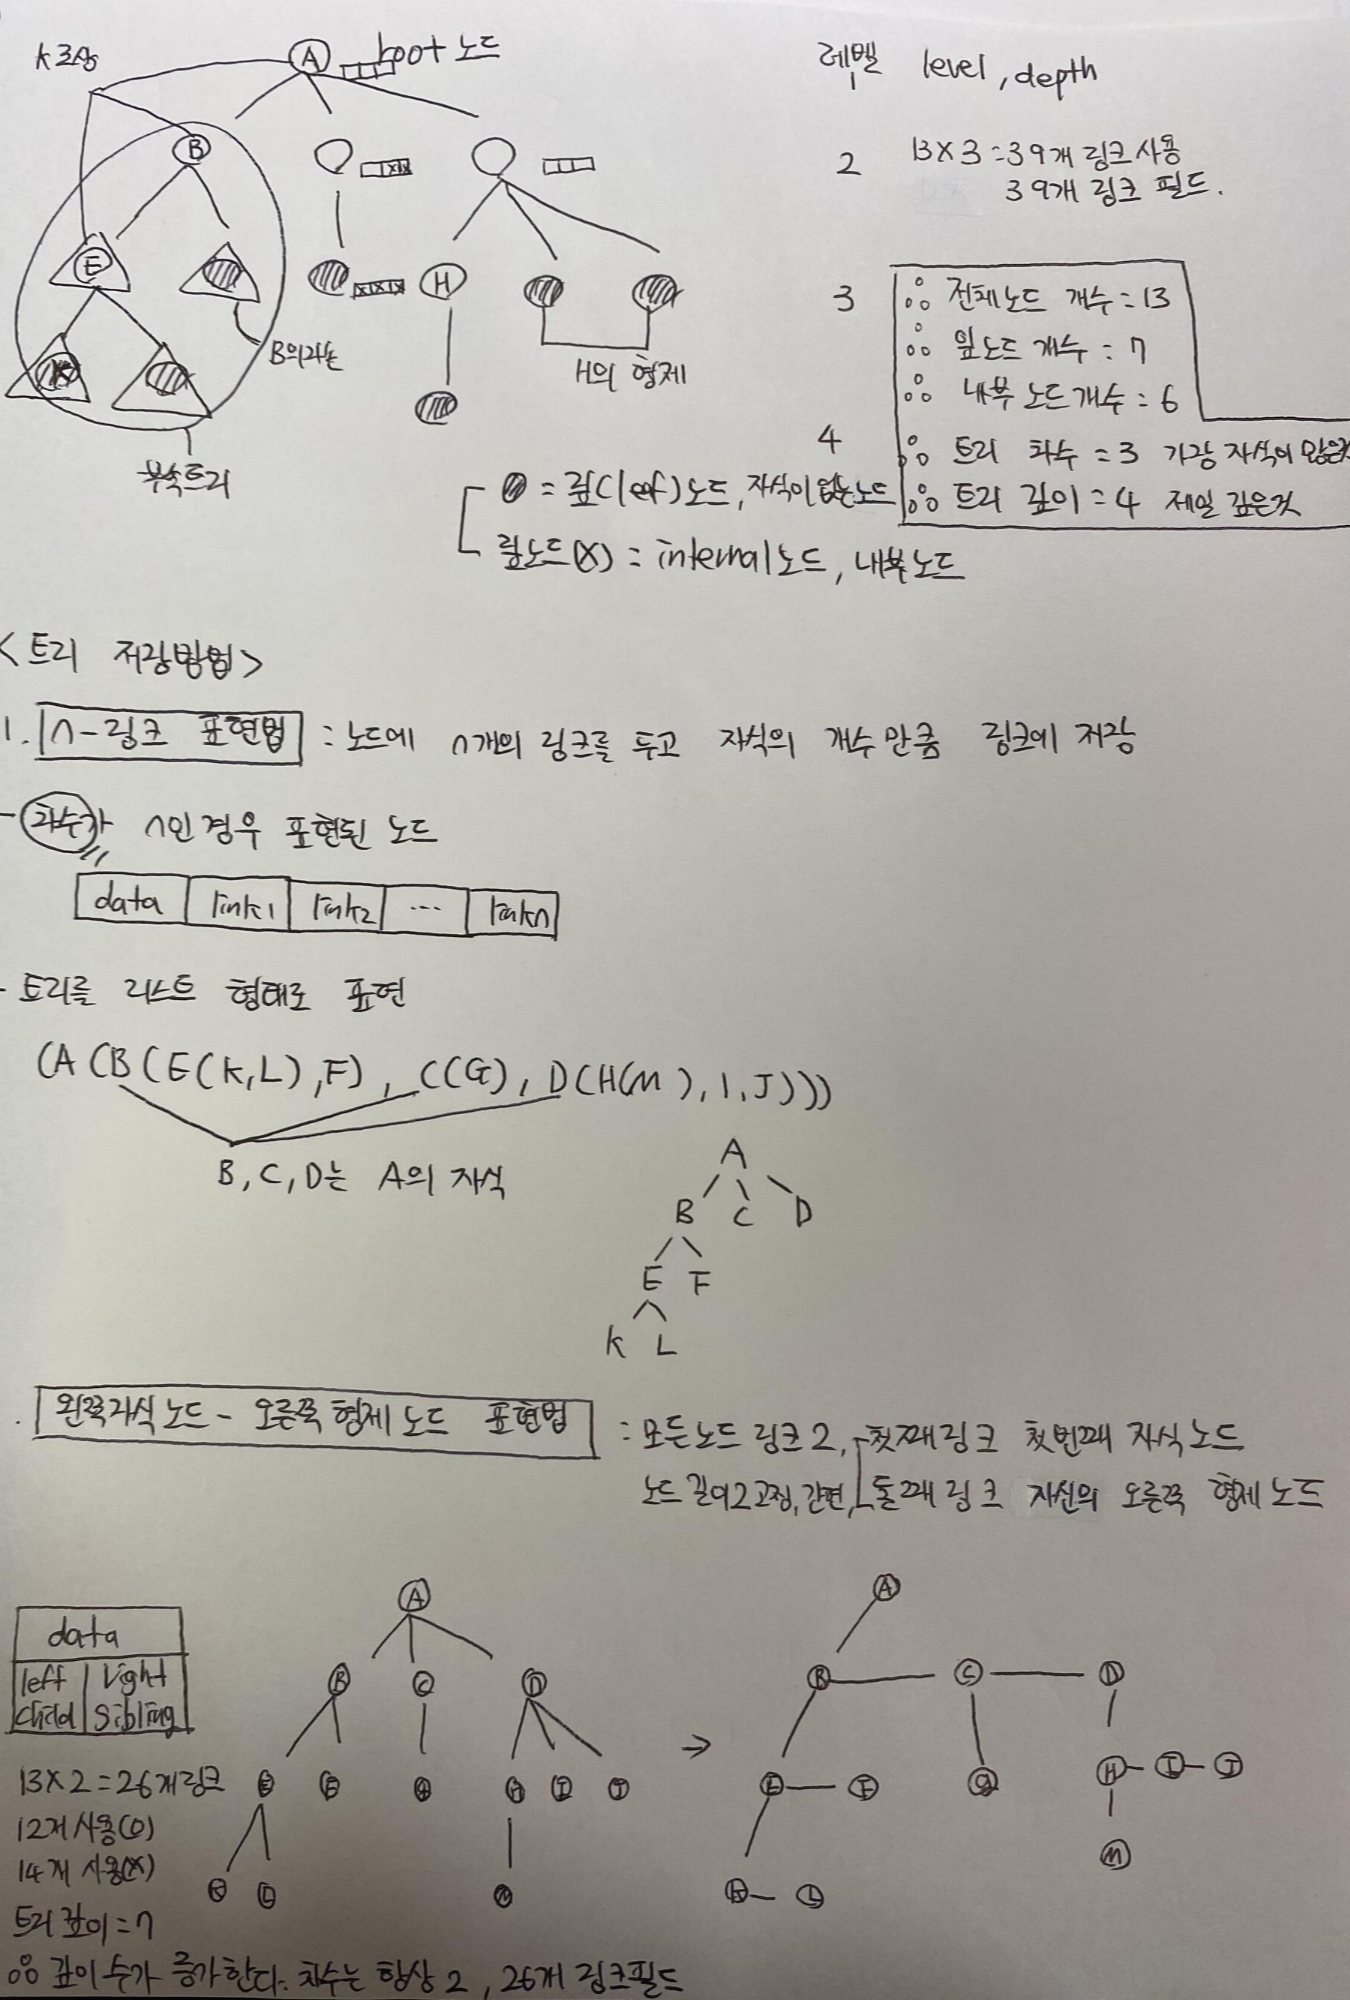 k조상
A root 노드
레벨 level, depth
B
2 13×3=39개 링크 사용
39개 링크 필드.
E
H
3 ∴ 전체노드 개수=13
∴ 잎노드 개수=7
K
B의자손
H의 형제
∴ 내부 노드개수=6
4 ∴ 트리 차수=3 가장 자식이 많은것
부속트리
=잎(leef)노드, 자식이 없는노드
∴ 트리 깊이=4 제일 깊은것
잎노드(X)=internal노드, 내부노드
<트리 저장방법>
1. n-링크 표현법 : 노드에 n개의 링크를 두고 자식의 개수만큼 링크에 저장
- 차수가 n인경우 표현된 노드
data link1 link2 ... linkn
- 트리를 리스트 형태로 표현
(A(B(E(K,L),F), C(G), D(H(M),I,J)))
B,C,D는 A의 자식
A
B C D
E F
K L
. 왼쪽자식노드-오른쪽 형제노드 표현법 : 모든노드 링크2, 첫째링크 첫번째 자식노드
노드길이2고정, 간편, 둘째링크 자신의 오른쪽 형제노드
data
left child right sibling
A
B C D
E F G H I J
K L M
→
A
B C D
E F G H I J
K L M
13×2=26개링크
12개사용(O)
14개 사용(X)
트리깊이=7
∴ 깊이수가 증가한다. 차수는 항상 2, 26개 링크필드